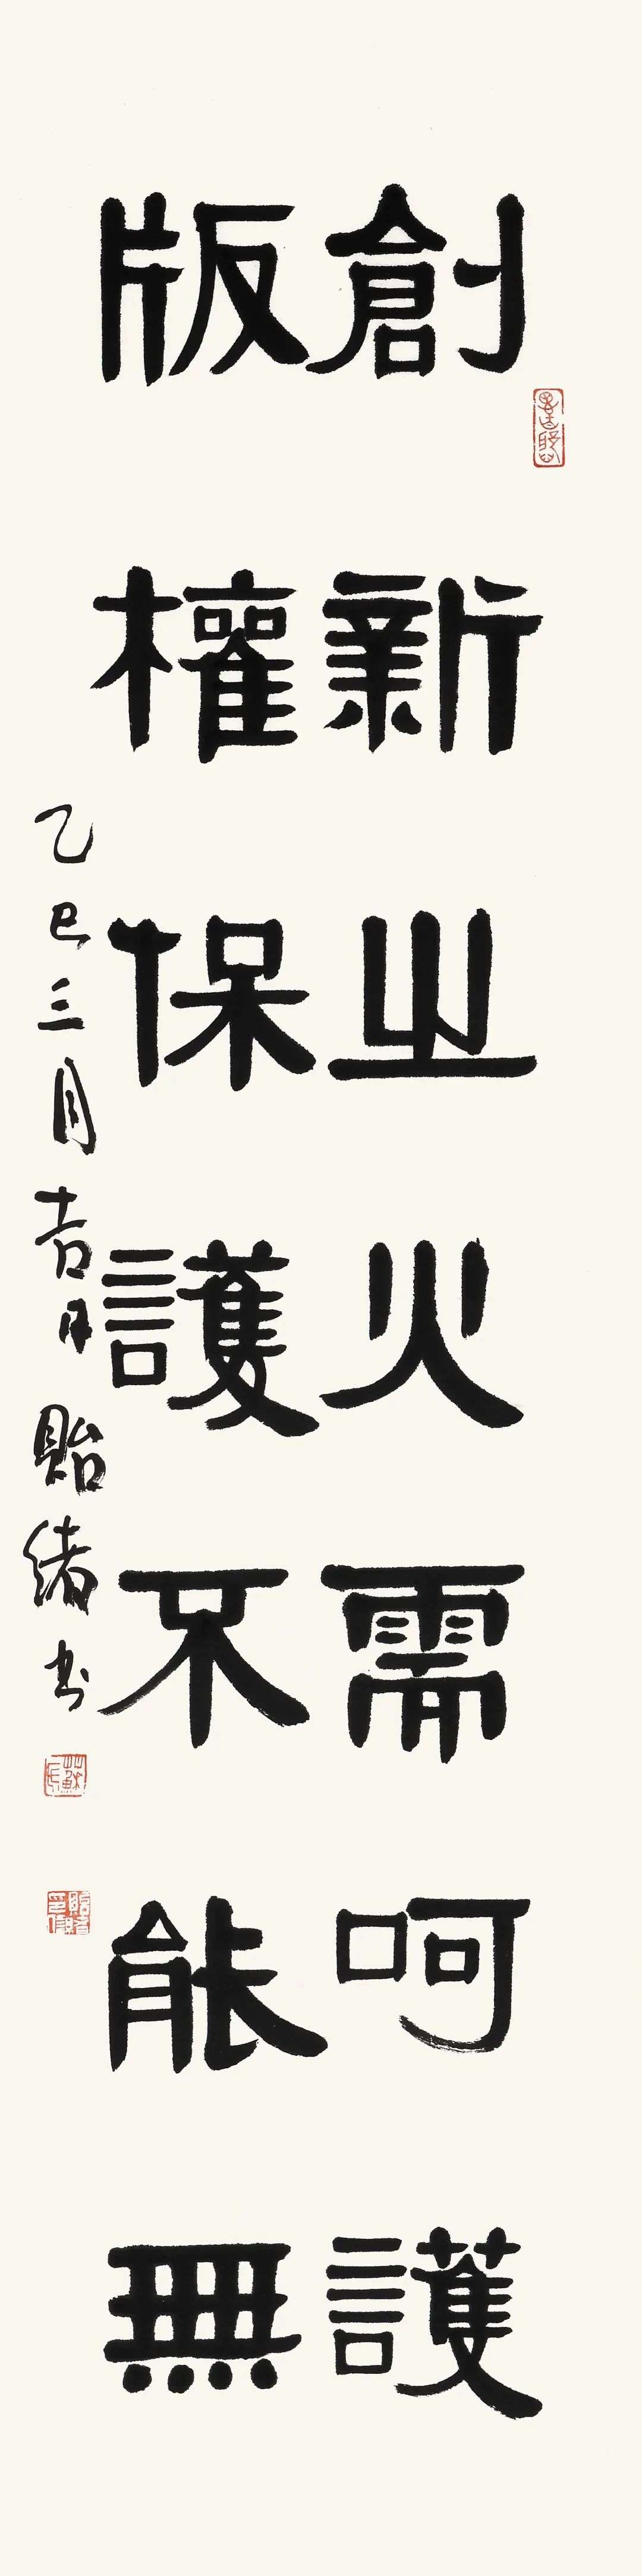 創新之火需呵護
版權保護不能無
乙巳三月吉日貽緒书